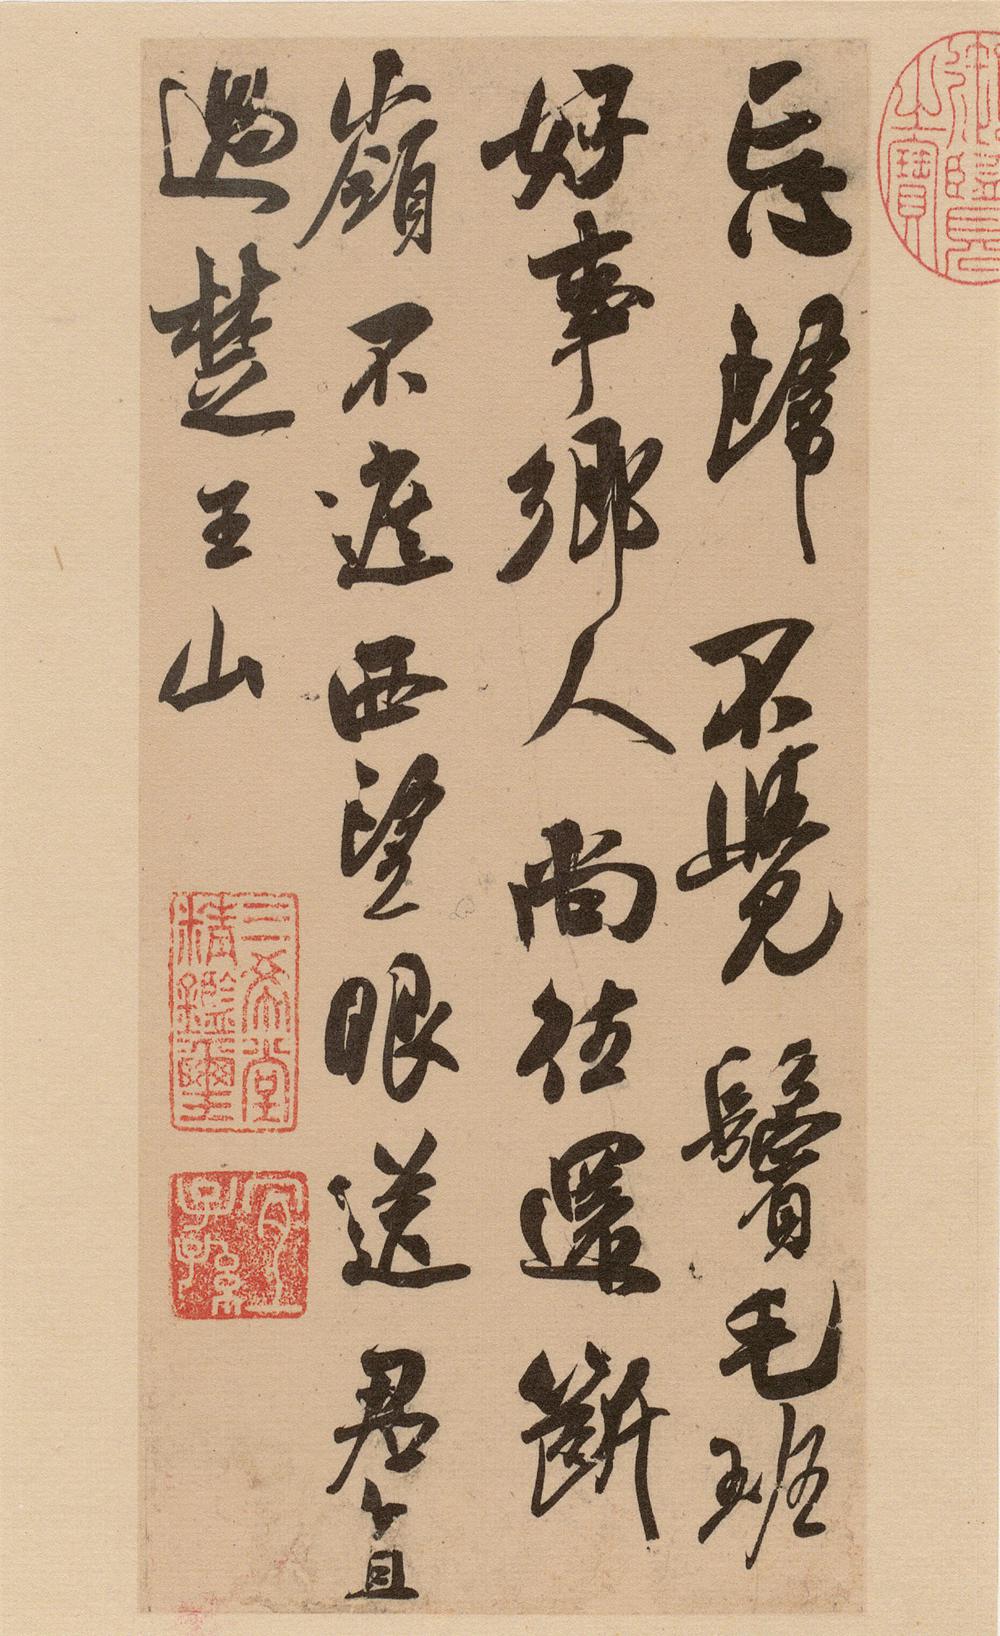 御覽
之寶
忘歸不覺鬢毛班
好事鄉人尚往還斷
嶺不遮西望眼送君直
過楚王山
三希堂
精鑑璽
宜子孫